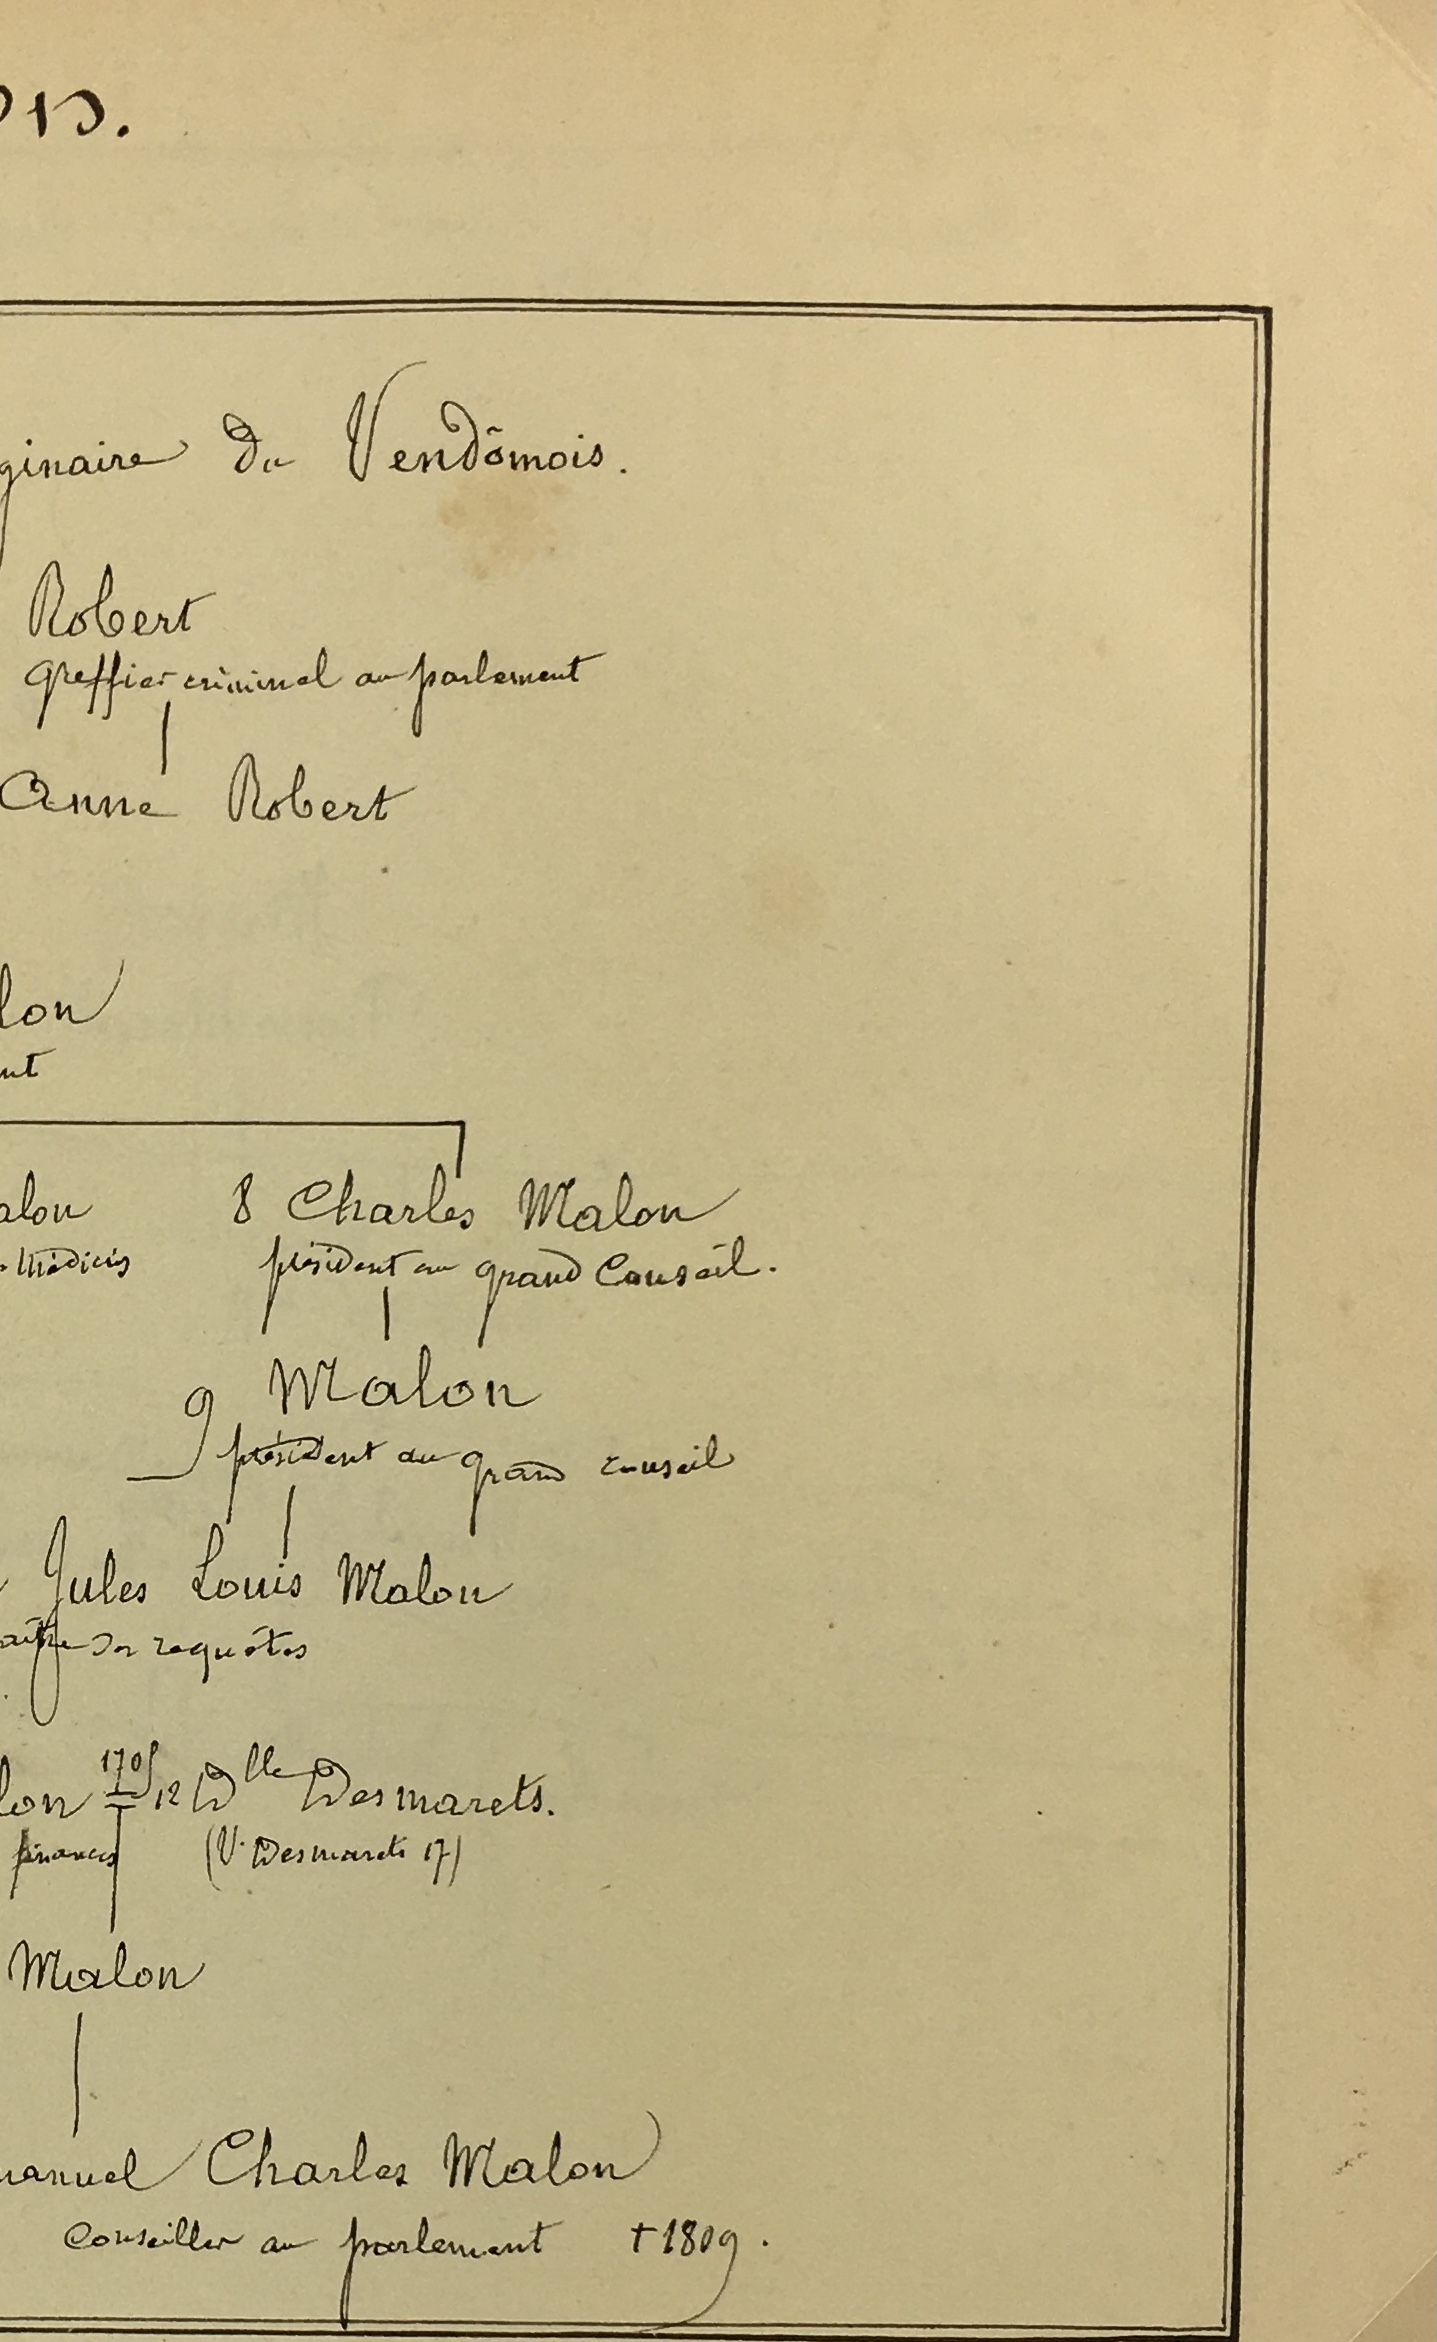 ginaire du Vendômois.
Robert
Greffier criminel au parlement
Anne Robert
lon
nt
alon 8 Charles Malon
Médicis président au grand Conseil.
9 Malon
président au grand conseil
Jules Louis Malon
aître des requêtes
1705
lon 12 Dlle Desmarets.
finances (V. Desmarets 17)
Malon
manuel Charles Malon
Conseiller au parlement † 1809.